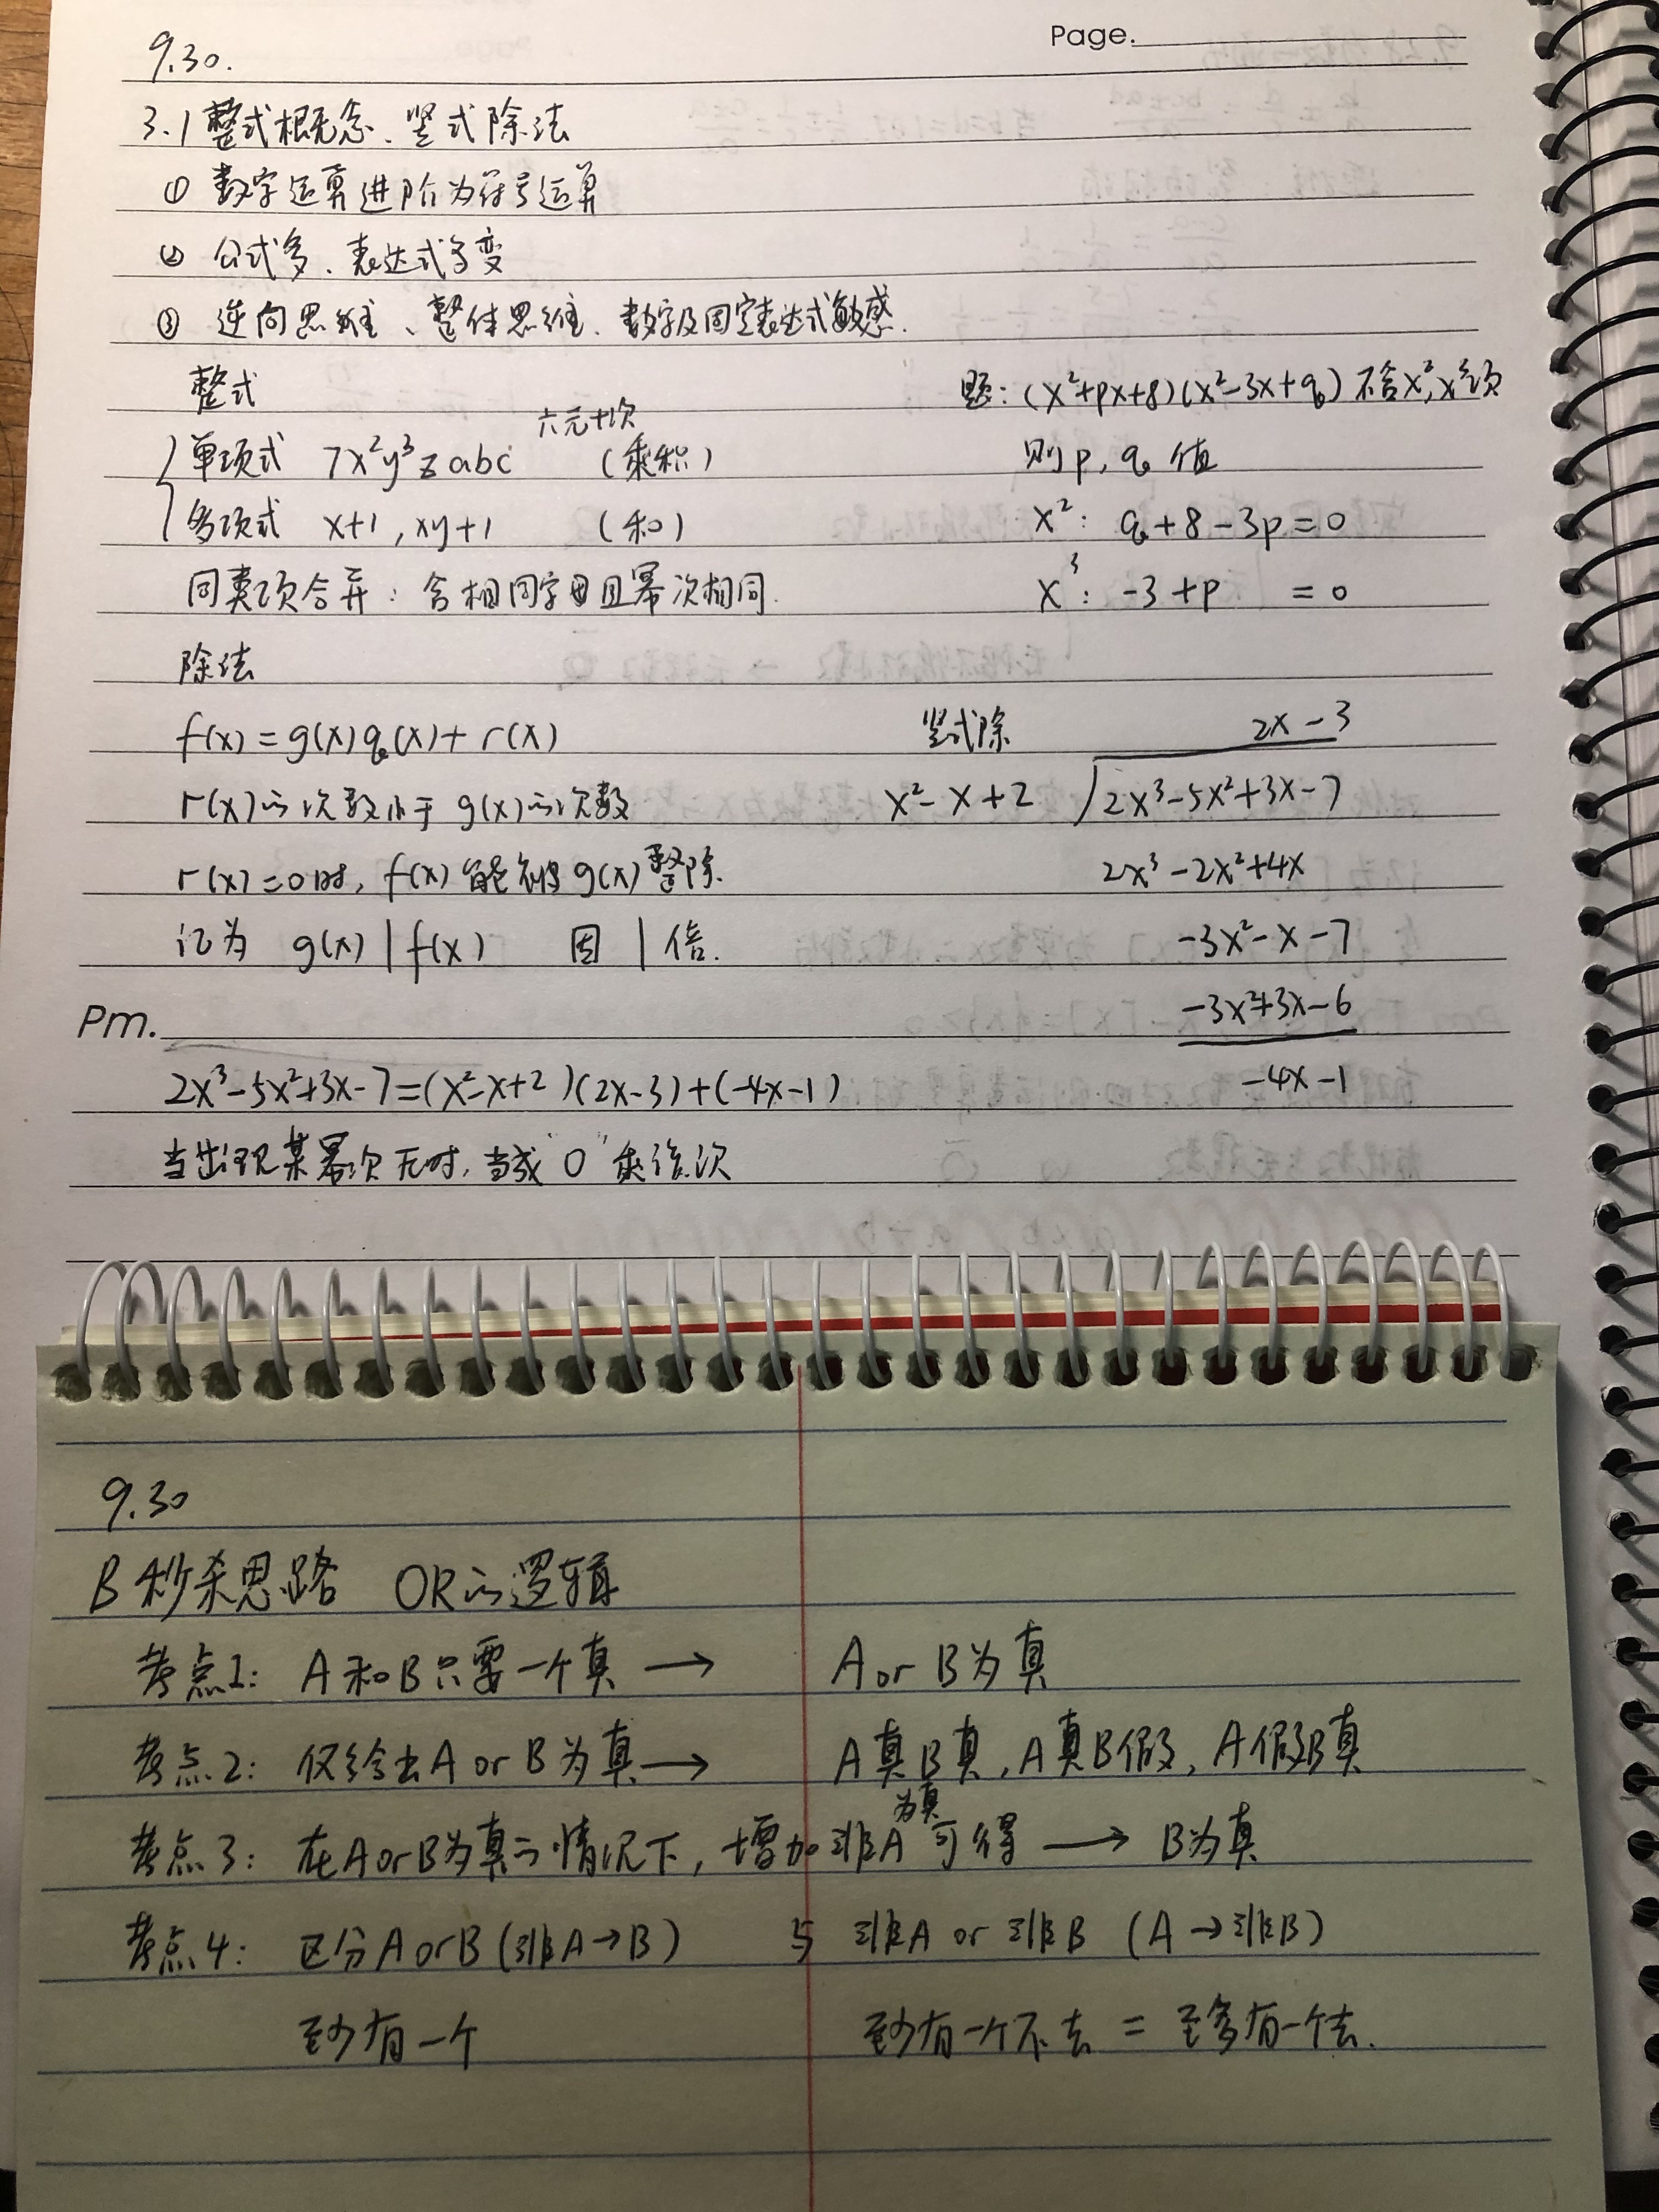 Page.
9.30.
3.1 整式概念、竖式除法
① 数字运算进阶为符号运算
② 公式多、表达式多变
③ 逆向思维、整体思维、数字及固定表达式敏感.
整式
题: (x²+px+8)(x²-3x+q) 不含x²,x³项
六元十次
单项式 7x²y³zabc (乘积)
则p, q 值
多项式 x+1, xy+1 (和)
x²: q+8-3p=0
同类项合并: 含相同字母且幂次相同.
x³: -3+p =0
除法
f(x)=g(x)q(x)+r(x)
竖式除 2x-3
r(x)的次数小于g(x)的次数
x²-x+2 2x³-5x²+3x-7
r(x)=0时, f(x)能被g(x)整除.
2x³-2x²+4x
记为 g(x)|f(x) 因|倍.
-3x²-x-7
Pm.
-3x²+3x-6
2x³-5x²+3x-7=(x²-x+2)(2x-3)+(-4x-1)
-4x-1
当出现某幂次无时, 当成"0"乘该次
9.30
B 秒杀思路 OR的逻辑
考点1: A和B只要一个真 → A or B为真
考点2: 仅给出A or B为真 → A真B真, A真B假, A假B真
考点3: 在A or B为真的情况下, 增加非A为真可得 → B为真
考点4: 区分A or B (非A→B) 与 非A or 非B (A→非B)
至少有一个 至少有一个不去 = 至多有一个去.